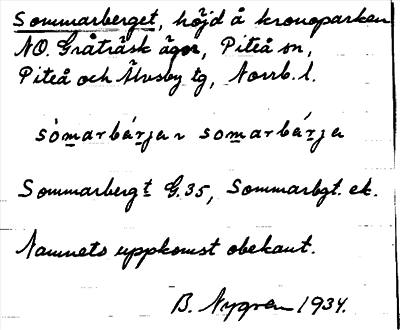 Sommarberget, höjd å kronoparken
NO. Gråträsk ägor, Piteå sn,
Piteå och Älvsby tg, Norrb. l.
sòmarbárja ~ somarbárja
Sommarbergt G. 35, Sommarbgt. ek.
Namnets uppkomst obekant.
B. Nygren 1934.